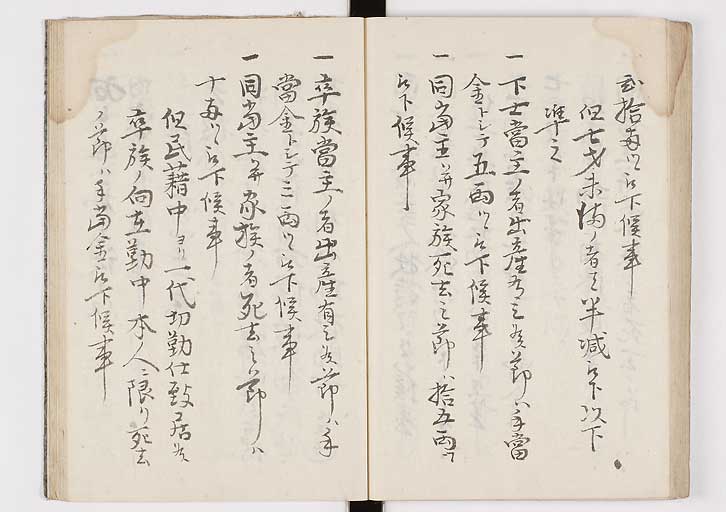 弐拾両ツヽ被下候事
但七才未満ノ者ハ半減被下以下
準之
一下士當主ノ者出産有之候節ハ手當
金トシテ五両ツヽ被下候事
一同当主并家族死去之節ハ拾五両ツヽ
被下候事
一卒族當主ノ者出産有之候節ハ手
當金トシテ三両ツヽ被下候事
一同当主并家族ノ者死去之節ハ
十両ツヽ被下候事
但民籍中ヨリ一代切勤仕致居候
卒族ノ向在勤中本人ニ限リ死去
ノ節ハ手当金被下候事